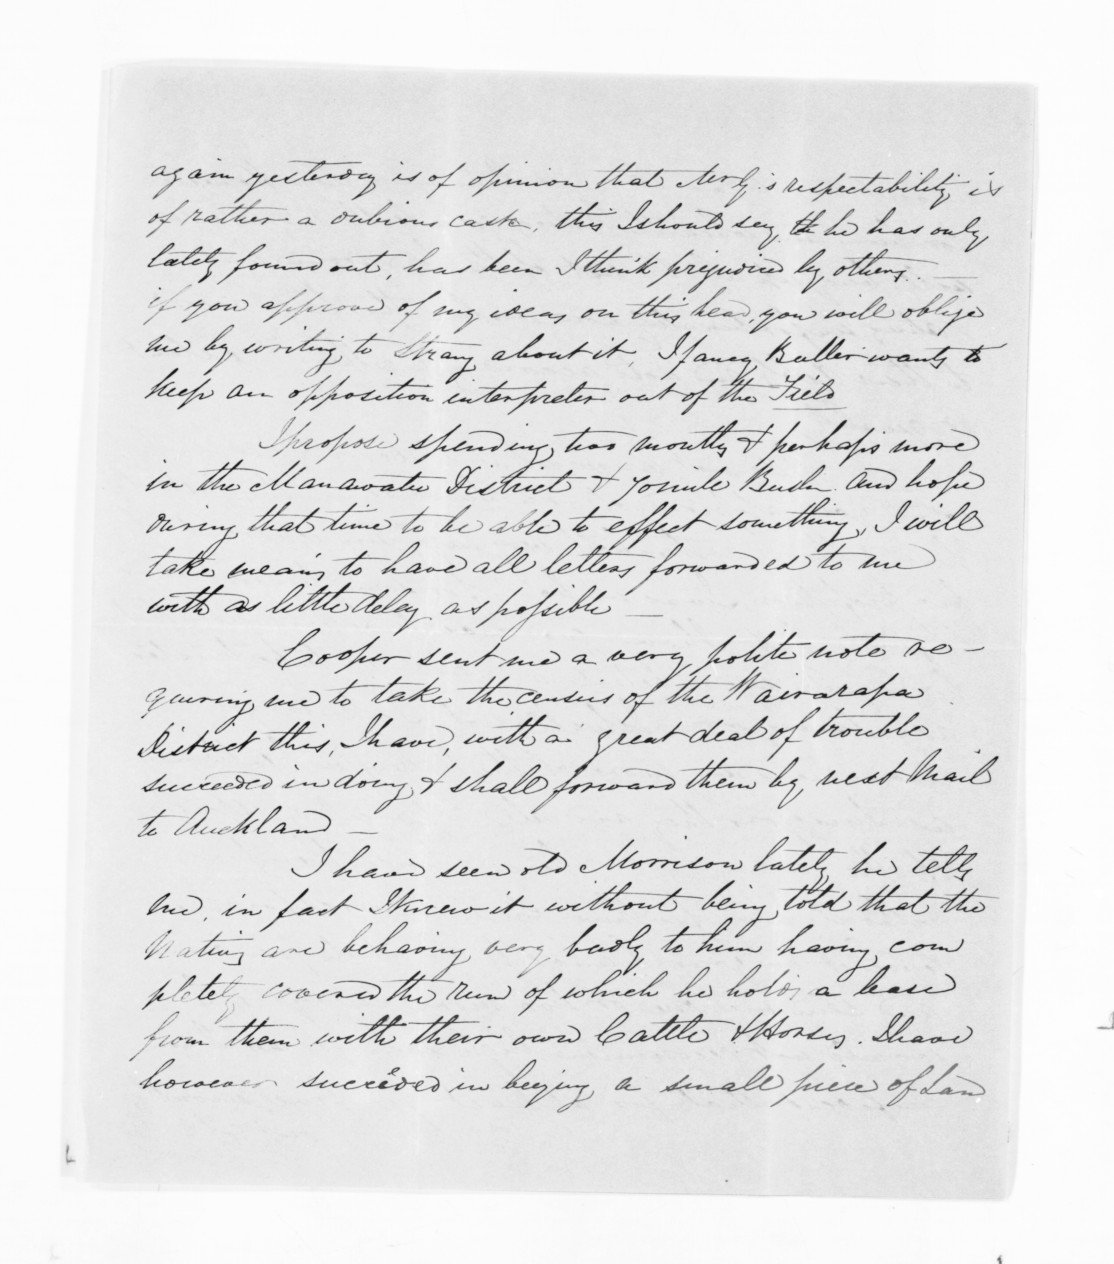 again yesterday is of opinion that 's respectability is
of rather a dubious cask, this I should say he has only
lately found out, has been I think prejudiced by others. —
if you approve of my ideas on this head, you will oblige
me by writing to Strang about it, I fancy Buller wants to
keep an opposition interpreter out of the Field
I propose spending two months & perhaps more
in the Manawatu District & 70 mile Bush and hope
during that time to be able to effect something, I will
take means to have all letters forwarded to me
with as little delay as possible —
Cooper sent me a very polite note re-
quiring me to take the census of the Wairarapa
District this, I have, with a great deal of trouble
succeeded in doing & shall forward them by next Mail
to Auckland —
I have seen old Morrison lately he tells
me, in fact I knew it without being told that the
Natives are behaving very badly to him having com
pletely covered the run of which he holds a lease
from them with their own Cattle & Horses. I have
however succeeded in buying a small piece of Land